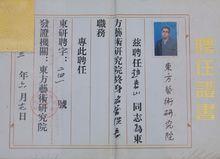 聘任證書
東方藝術研究院
茲聘任
同志為東
方藝術研究院終身名譽院士
職務
專此聘任
東研聘字：二四一號
發證機關：東方藝術研究院
年六月